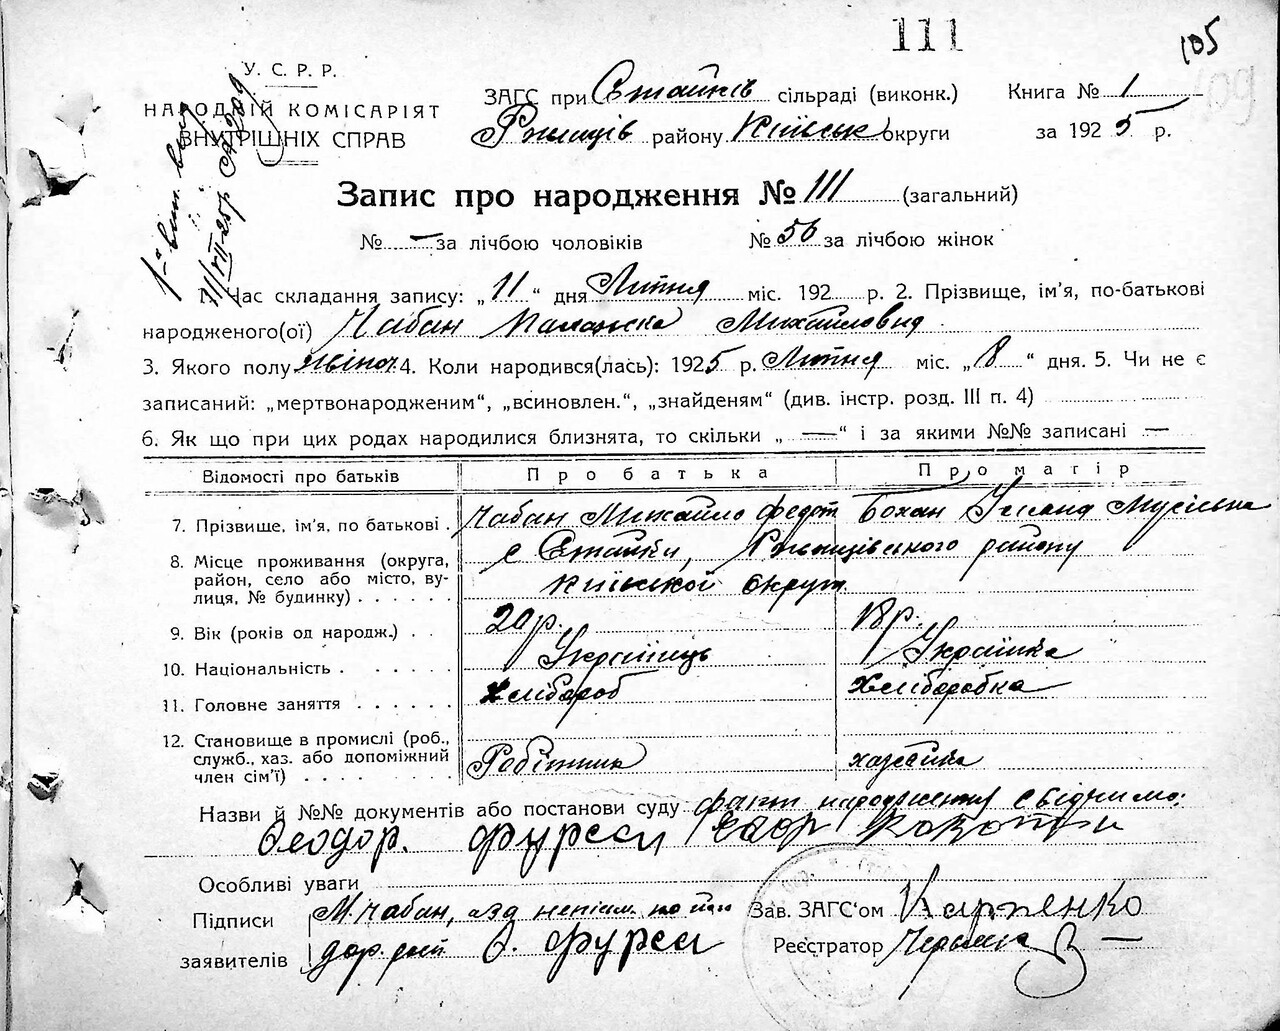 111
105
109
У. С. Р. Р.
НАРОДНІЙ КОМІСАРІЯТ
ВНУТРІШНІХ СПРАВ
ЗАГС при Стайків сільраді (виконк.)
Ржищів району Київськ округи
Книга № 1
за 1925 р.
Запис про народження № 111 (загальний)
№ — за лічбою чоловіків № 56 за лічбою жінок
1. Час складання запису: „11“ дня Липня міс. 192 р. 2. Прізвище, ім'я, по-батькові
народженого(ої) Чабан Маланка Михайловна
3. Якого полу жіноч. 4. Коли народився(лась): 1925 р. Липня міс. „8“ дня. 5. Чи не є
записаний: „мертвонародженим“, „всиновлен.“, „знайденям“ (див. інстр. розд. III п. 4)
6. Як що при цих родах народилися близнята, то скільки „—“ і за якими №№ записані —
Відомості про батьків Про батька Про матір
7. Прізвище, ім'я, по батькові . Чабан Михайло Федот Бохан Уляна Мусіївна
8. Місце проживання (округа, с Стайки, Ржищівського району
район, село або місто, ву- Київської округи
лиця, № будинку) . . . . .
9. Вік (років од народж.) . . 20 р. 18 р.
10. Національність . . . . . Українець Українка
11. Головне заняття . . . . . . хлібороб хліборобка
12. Становище в промислі (роб.,
служб., хаз. або допоміжний Робітник хазяйка
член сім'ї) . . . .
Назви й №№ документів або постанови суду факт народження свідчимо:
Феодор. Фурса
Особливі уваги
Підписи М. Чабан, а за непісьм. по його
заявителів дор. Фурса
Зав. ЗАГС'ом Карпенко
Реєстратор